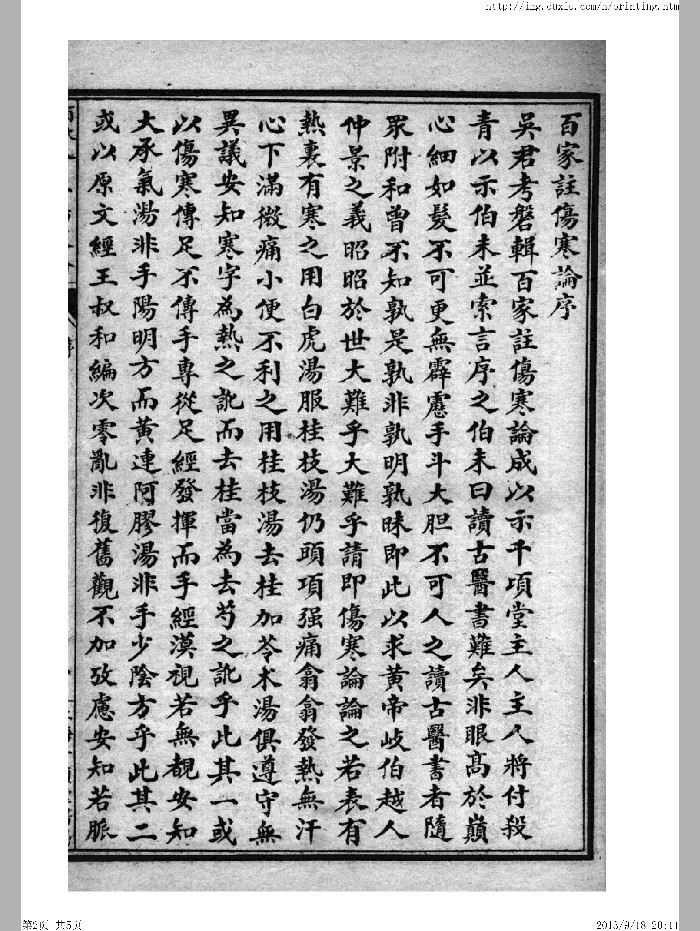 http://img.duxiu.com/n/printing.htm
百家註傷寒論序
吳君考槃輯百家註傷寒論成以示千項堂主人主人將付殺
青以示伯未並索言序之伯未曰讀古醫書難矣非眼高於巔
心細如髮不可更無霹靂手斗大胆不可人之讀古醫書者隨
眾附和曾不知孰是孰非孰明孰昧即此以求黃帝岐伯越人
仲景之義昭昭於世大難乎大難乎請即傷寒論論之若表有
熱裏有寒之用白虎湯服桂枝湯仍頭項强痛翕翕發熱無汗
心下滿微痛小便不利之用桂枝湯去桂加苓朮湯俱遵守無
異議安知寒字為熱之訛而去桂當為去芍之訛乎此其一或
以傷寒傳足不傳手專從足經發揮而手經漠視若無覩安知
大承氣湯非手陽明方而黃連阿膠湯非手少陰方乎此其二
或以原文經王叔和編次零亂非復舊觀不加攷慮安知若脈
序
第2页 共5页
2013/9/18 20:11